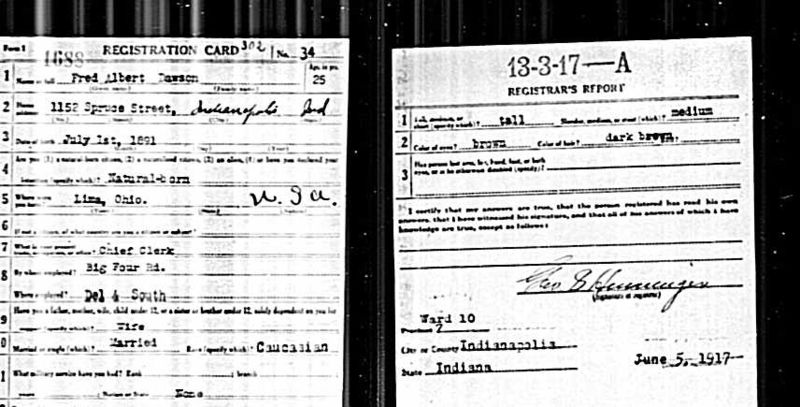 Form 1 1688 REGISTRATION CARD 302 No. 34
1 Name in full Fred Albert Dawson Age, in yrs. 25
(Given name) (Family name)
2 Home address 1152 Spruce Street, Indianapolis Ind
(No.) (Street) (City) (State)
3 Date of birth July 1st, 1891
(Month) (Day) (Year)
4 Are you (1) a natural-born citizen, (2) a naturalized citizen, (3) an alien, (4) or have you declared your
intention (specify which)? Natural-born
5 Where were you born? Lima, Ohio. U.S.A.
(Town) (State) (Nation)
6 If not a citizen, of what country are you a citizen or subject?
7 What is your present trade, occupation, or office? Chief Clerk
8 By whom employed? Big Four Rd.
Where employed? Del & South
9 Have you a father, mother, wife, child under 12, or a sister or brother under 12, solely dependent on you for
support (specify which)? Wife
0 Married or single (which)? Married Race (specify which)? Caucasian
1 What military service have you had? Rank branch
years Nation or State None
13-3-17-A
REGISTRAR'S REPORT
1 Tall, medium, or short (specify which)? tall Slender, medium, or stout (which)? medium
2 Color of eyes? brown Color of hair? dark brown
3 Has person lost arm, leg, hand, foot, or both
eyes, or is he otherwise disabled (specify)?
I certify that my answers are true, that the person registered has read his own
answers, that I have witnessed his signature, and that all of his answers of which I have
knowledge are true, except as follows:
(Signature of registrar)
Ward 10
Precinct 7
City or County Indianapolis
State Indiana June 5, 1917